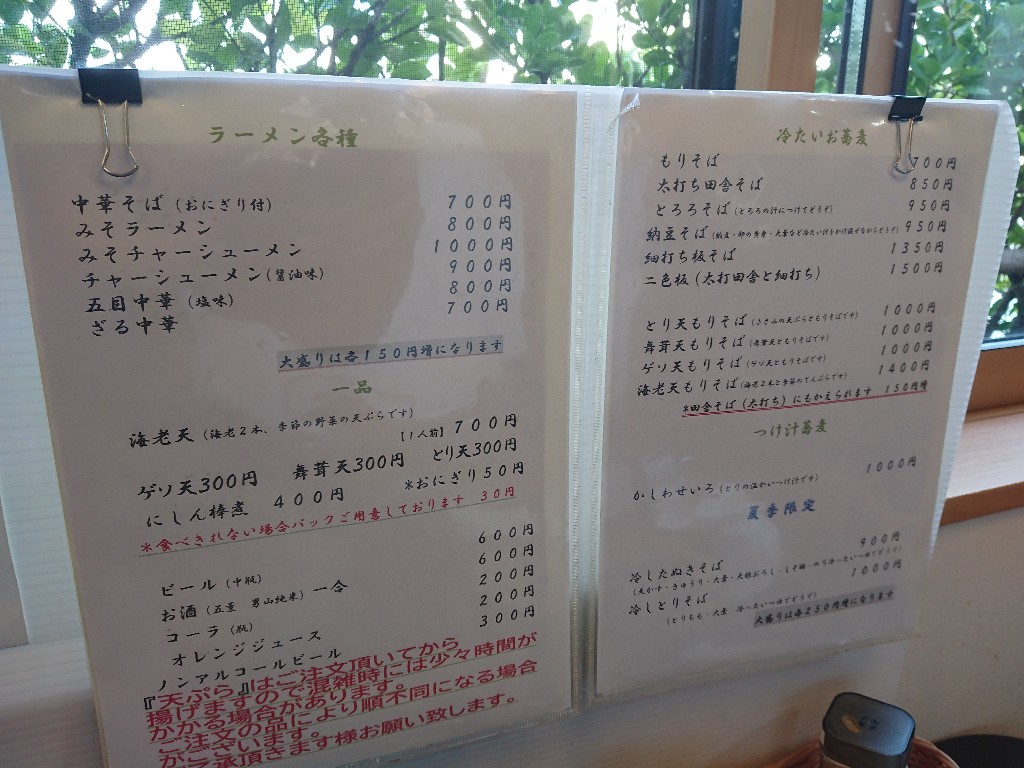 ラーメン各種
中華そば(おにぎり付) 700円
みそラーメン 800円
みそチャーシューメン 1000円
チャーシューメン(醤油味) 900円
五目中華(塩味) 800円
ざる中華 700円
大盛りは各150円増になります
一品
海老天(海老2本、季節の野菜の天ぷらです)
【1人前】700円
ゲソ天300円 舞茸天300円 とり天300円
にしん棒煮 400円 *おにぎり50円
*食べきれない場合パックご用意しております 30円
ビール(中瓶) 600円
お酒(五景 男山純米)一合 600円
コーラ(瓶) 200円
オレンジジュース 200円
ノンアルコールビール 300円
『天ぷら』はご注文頂いてから
揚げますので混雑時には少々時間が
かかる場合があります。
ご注文の品により順不同になる場合
がございます。
ご了承頂きます様お願い致します。
冷たいお蕎麦
もりそば 700円
太打ち田舎そば 850円
とろろそば(とろろの汁につけてどうぞ) 950円
納豆そば 950円
細打ち板そば 1350円
二色板(太打田舎と細打ち) 1500円
とり天もりそば(ささみの天ぷらともりそばです) 1000円
舞茸天もりそば(舞茸天ともりそばです) 1000円
ゲソ天もりそば(ゲソ天ともりそば) 1000円
海老天もりそば(海老2本と季節のてんぷらです) 1400円
*田舎そば(太打ち)にもかえられます 150円増
つけ汁蕎麦
かしわせいろ(とりの温かいつけ汁です) 1000円
夏季限定
冷したぬきそば 900円
(天かす・きゅうり・大葉・大根おろし・しそ梅・のり冷〜たい一杯でどうぞ)
冷しとりそば 1000円
(とりもも・大葉 冷〜たい一杯でどうぞ)
大盛りは各250円増になります